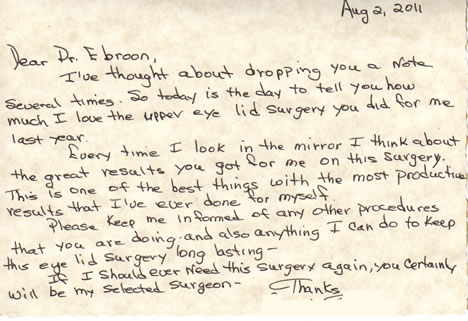 Aug 2, 2011
Dear Dr. Ebroon,
I've thought about dropping you a note
several times. So today is the day to tell you how
much I love the upper eye lid surgery you did for me
last year.
Every time I look in the mirror I think about
the great results you got for me on this surgery.
This is one of the best things with the most productive
results that I've ever done for myself.
Please keep me informed of any other procedures
that you are doing. and also anything I can do to keep
this eye lid surgery long lasting-
If I should ever need this surgery again, you certainly
will be my selected surgeon-
Thanks